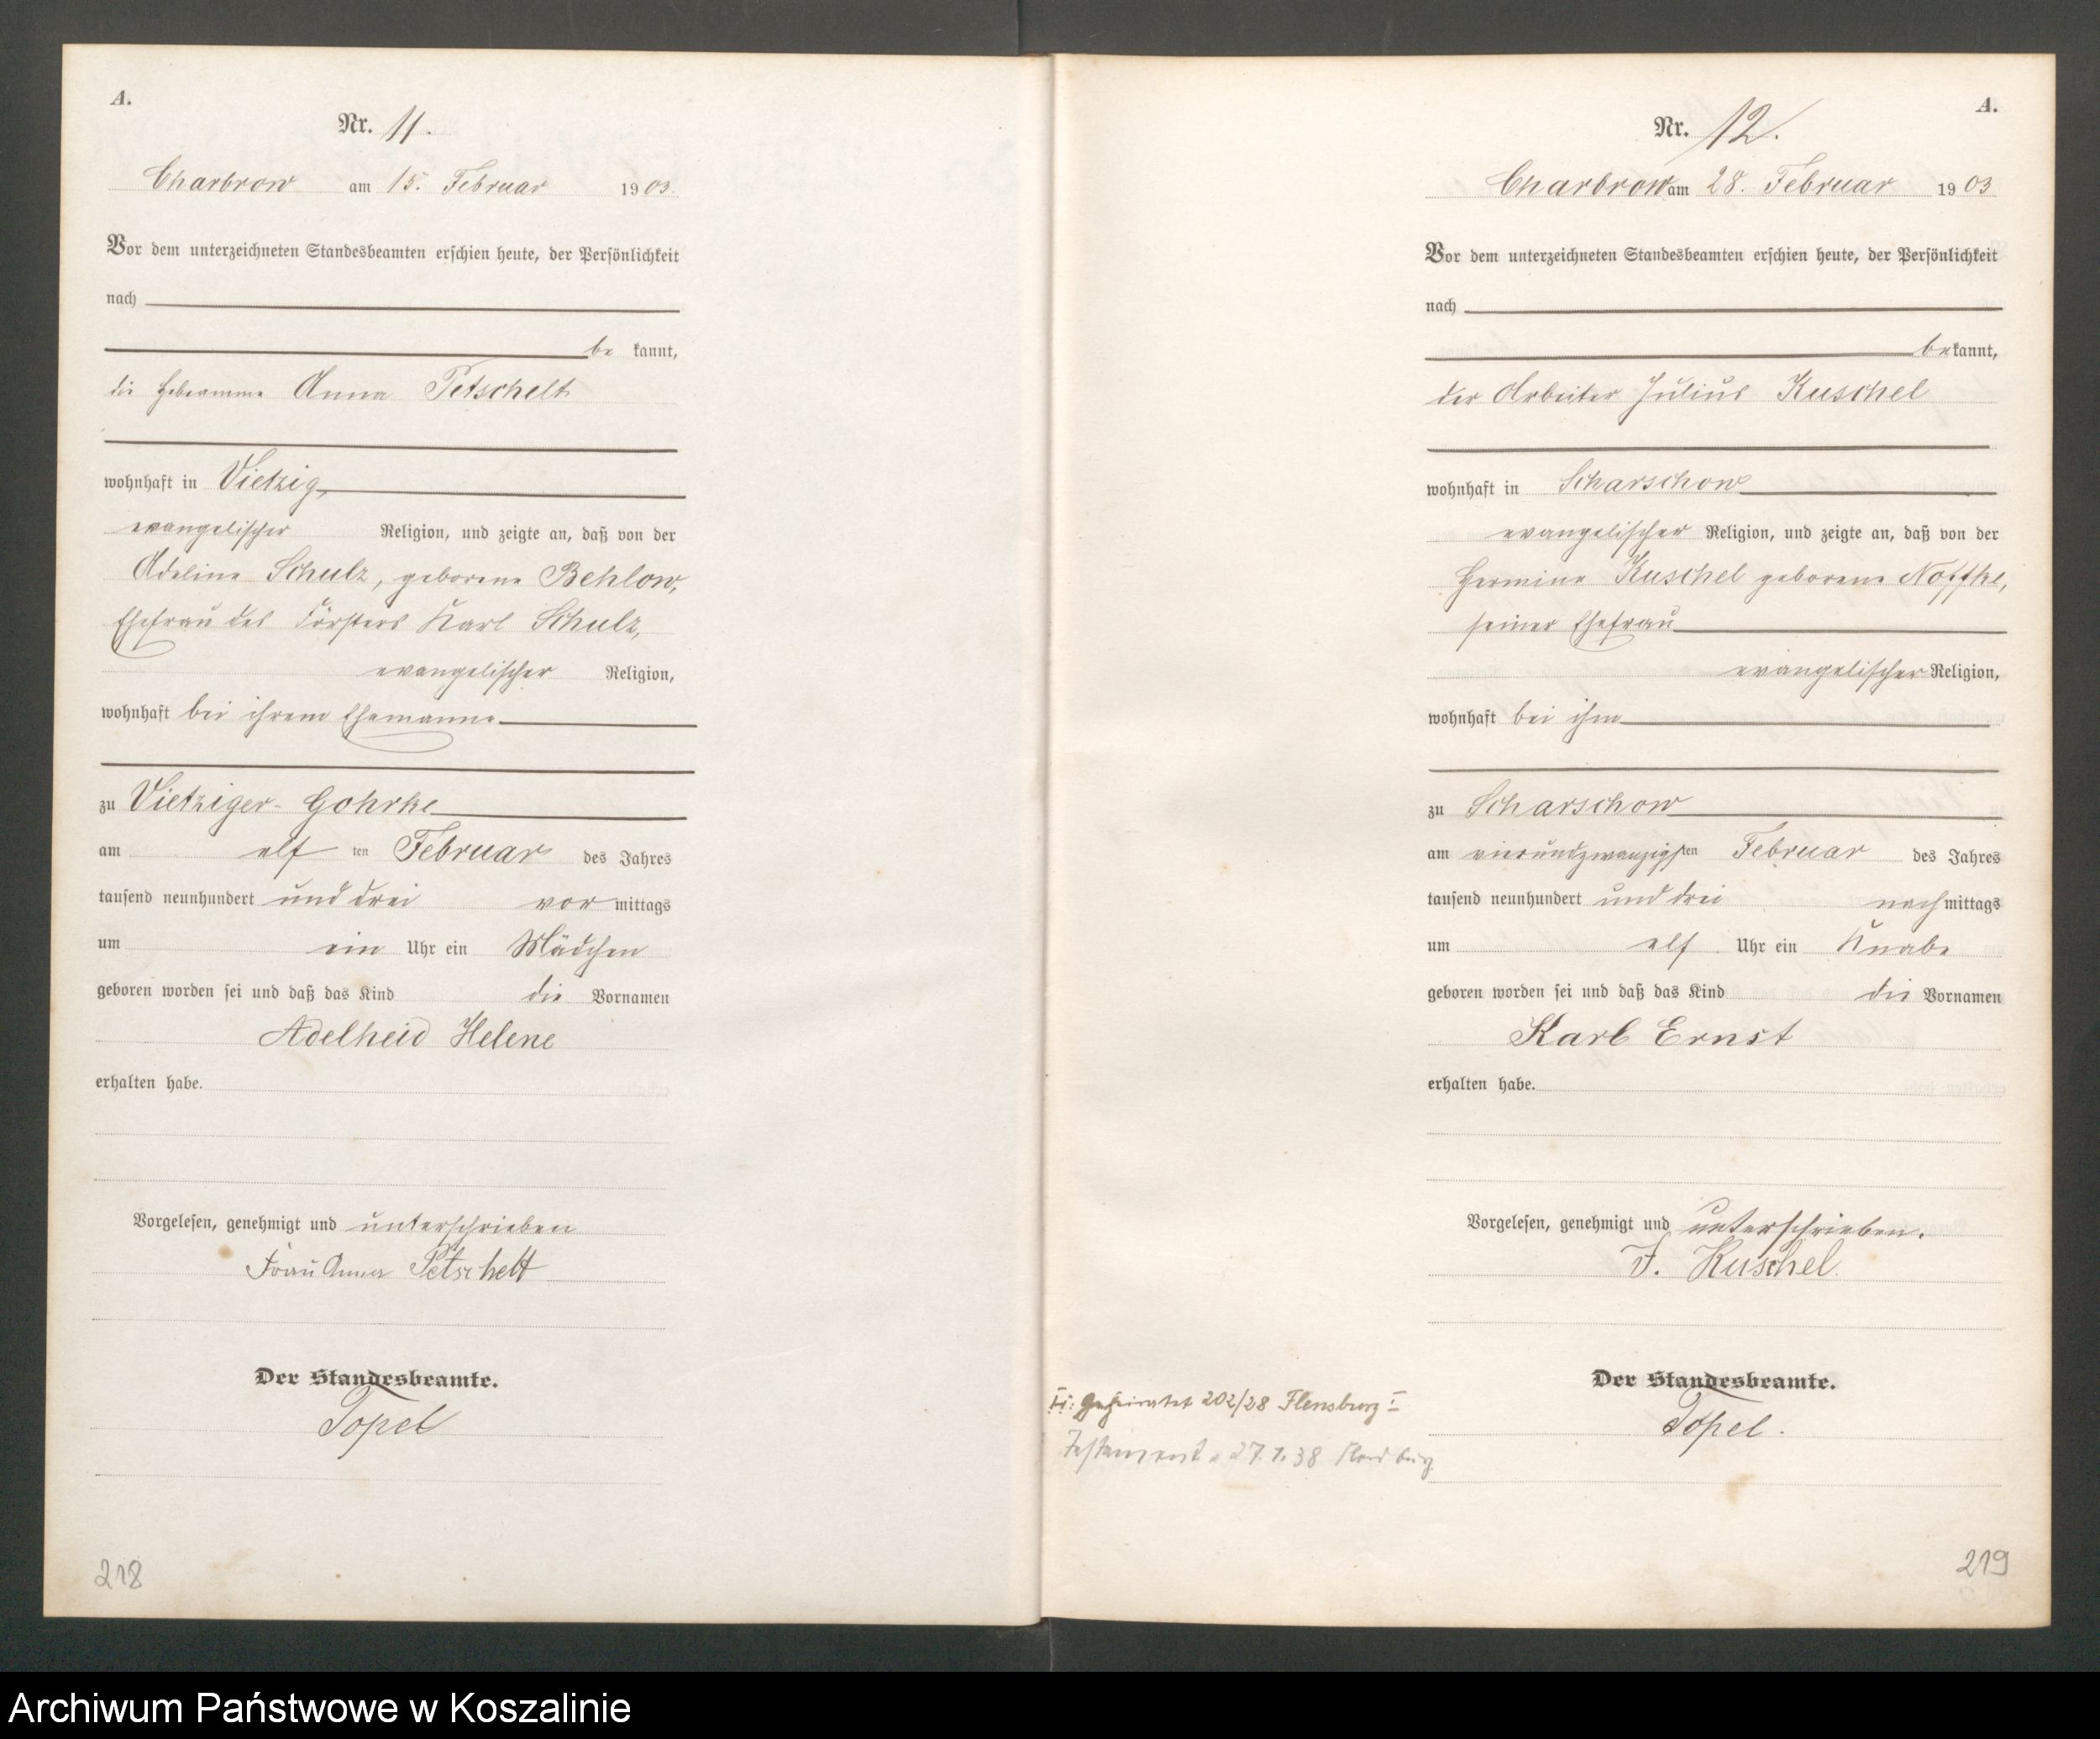 A.
Nr. 11.
Charbrow am 15. Februar 1903.
Vor dem unterzeichneten Standesbeamten erschien heute, der Persönlichkeit
nach
be kannt,
die Hebeamme Anna Petschelt
wohnhaft in Vietzig,
evangelischer Religion, und zeigte an, daß von der
Adeline Schulz, geborene Behlow,
Ehefrau des Försters Karl Schulz,
evangelischer Religion,
wohnhaft bei ihrem Ehemanne
zu Vietziger-Gohrke
am elf ten Februar des Jahres
tausend neunhundert und drei vor mittags
um ein Uhr ein Mädchen
geboren worden sei und daß das Kind die Vornamen
Adelheid Helene
erhalten habe.
Vorgelesen, genehmigt und unterschrieben
Frau Anna Petschelt
Der Standesbeamte.
Topel
218
A.
Nr. 12.
Charbrow am 28. Februar 1903
Vor dem unterzeichneten Standesbeamten erschien heute, der Persönlichkeit
nach
bekannt,
der Arbeiter Julius Kuschel
wohnhaft in Scharschow
evangelischer Religion, und zeigte an, daß von der
Hermine Kuschel geborene Noffke,
seiner Ehefrau
evangelischer Religion,
wohnhaft bei ihm
zu Scharschow
am vierundzwanzigsten Februar des Jahres
tausend neunhundert und drei nachmittags
um elf Uhr ein Knabe
geboren worden sei und daß das Kind die Vornamen
Karl Ernst
erhalten habe.
Vorgelesen, genehmigt und unterschrieben.
J. Kuschel.
Der Standesbeamte.
Topel.
geheiratet 202/28 Flensburg I
Testament 27.1.38
219
Archiwum Państwowe w Koszalinie